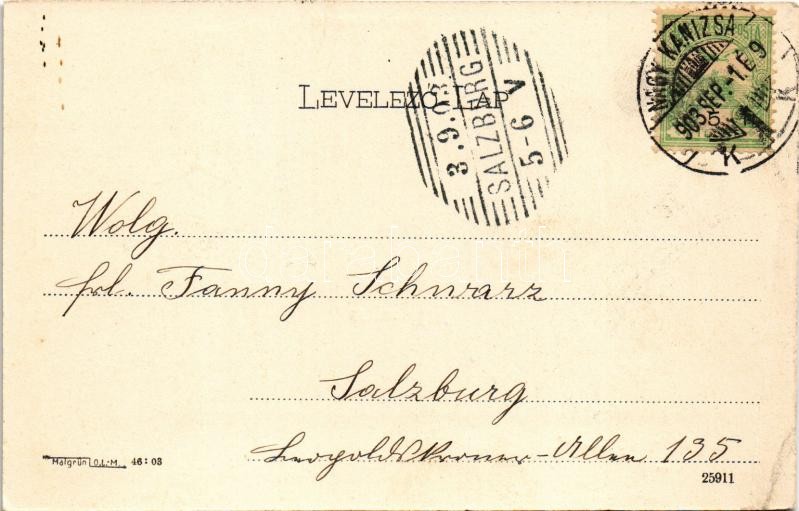 NAGY KANIZSA
903 SEP. -1. E 9
LEVELEZŐ-LAP
3.9.03
SALZBURG
5-6 V
Wolg.
frl. Fanny Schwarz
Salzburg
Leopoldskroner-Allee 135
Malgrün O.L.-M. 46:03
25911
darabanth